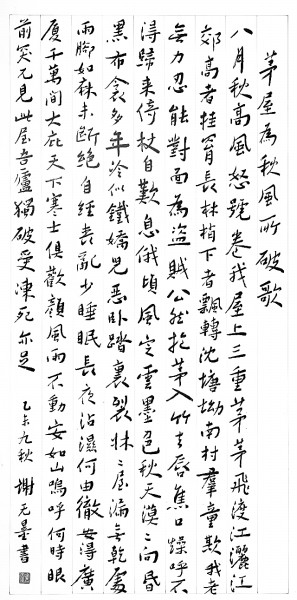 茅屋為秋風所破歌
八月秋高風怒號卷我屋上三重茅茅飛渡江灑江
郊高者挂罥長林梢下者飄轉沈塘坳南村羣童欺我老
無力忍能對面為盜賊公然抱茅入竹去唇焦口燥呼不
得歸來倚杖自歎息俄頃風定雲墨色秋天漠漠向昏
黑布衾多年冷似鐵嬌兒惡卧踏裏裂牀牀屋漏無乾處
雨腳如麻未斷絕自經喪亂少睡眠長夜沾濕何由徹安得廣
厦千萬間大庇天下寒士俱歡顏風雨不動安如山嗚呼何時眼
前突兀見此屋吾廬獨破受凍死亦足
乙未九秋 謝无量書